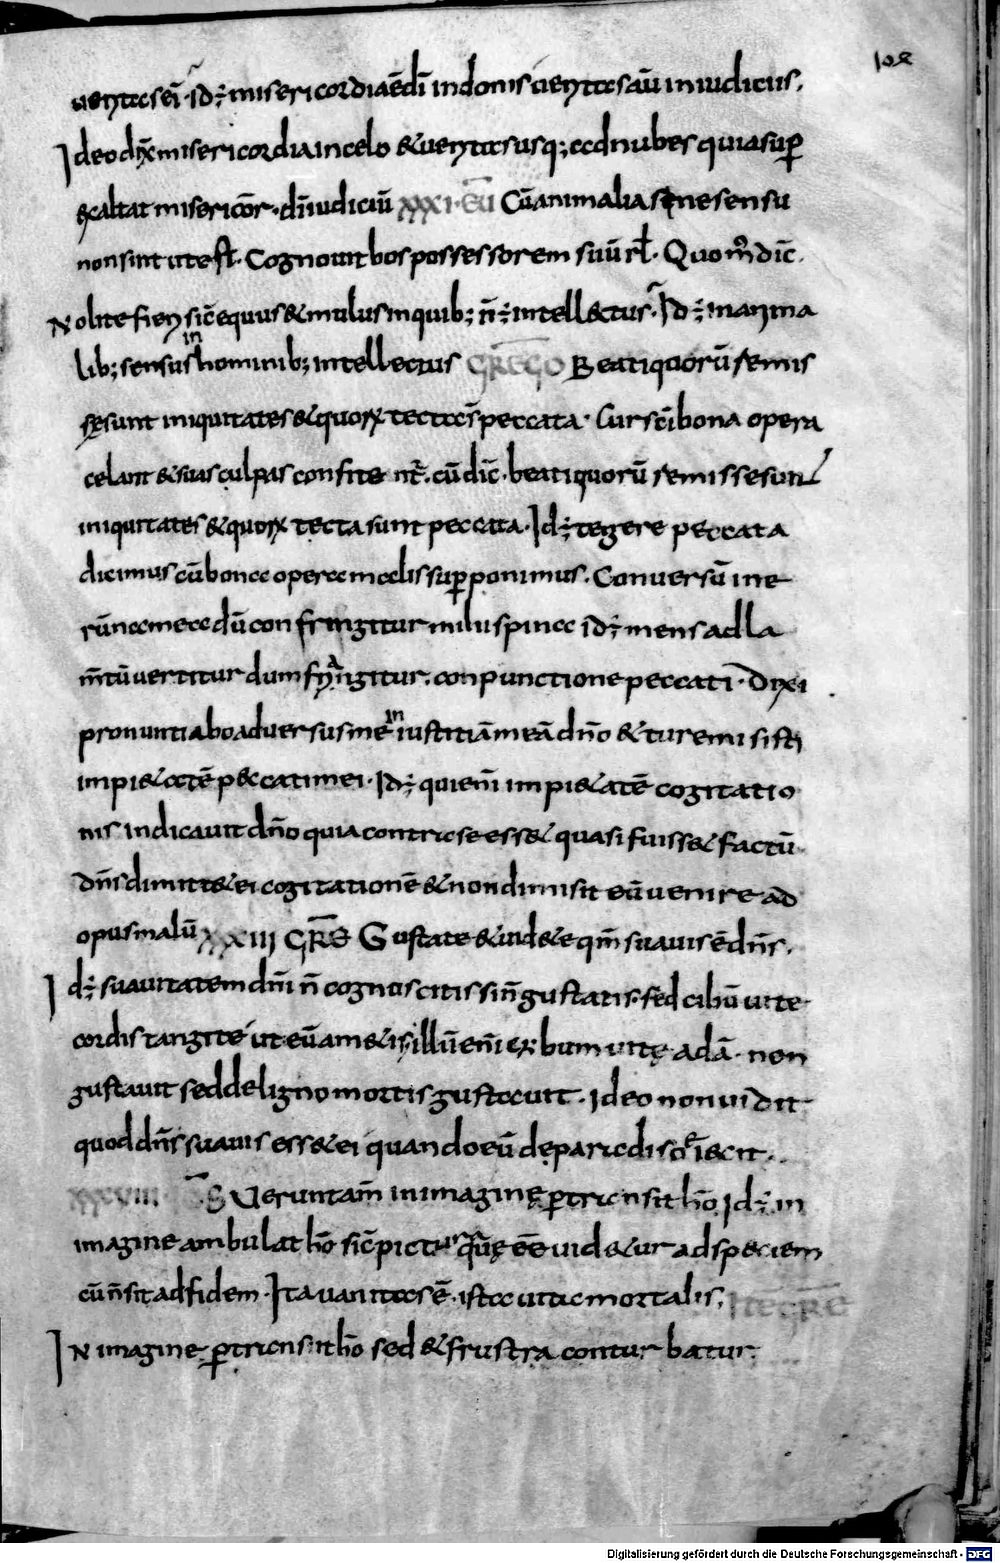 102
ueritas ei· id÷ misericordia ē dī in donis ueritas aū in iudiciis.
Ideo dix̄ misericordia in celo & ueritas usq; ad nubes quia sup̄
exaltat misericōr· dn̄i iudiciū XXXI· EU Cū animalia sine sensu
non sint ut est· Cognouit bos possessorem suū rl̄· Quom̄ dic̄.
Nolite fieri sic̄ equus & mulus in quib; n̄ ÷ intellectus· Id÷ in anima
lib; sensus in hominib; intellectus GREGO Beati quorū remis
sę sunt iniquitates & quorx tectas̄ peccata· Cur sc̄i bona opera
celant & suas culpas confitent̄· cū dic̄· beati quorū remisse sunt
iniquitates & quorx tecta sunt peccata· Id÷ tegere peccata
dicimus cū bona opera malis sup̄ponimus. Conuersū in e
rūna mea dū confringitur mihi spina id÷ mens ad la
m̄tū uertitur dum frangitur. conpunctione peccati· Dixi
pronuntiabo aduersus me iniustitiā meā dn̄o & tu remisisti
impi&atē peccati mei· Id÷ qui enī impi&atē cogitatio
nis indicauit dn̄o quia contrase ess& quasi fuiss& factū
dn̄s dimitt& ei cogitationē & non dimisit eū uenire ad
opus malū XXXIII GRE Gustate & uid&e qm̄ suauis ē dn̄s.
Id÷ suauitatem dn̄i n̄ cognoscitis si n̄ gustatis· sed cibū uite
cordis tangite ut eū am&is illū enī cibum uitę adā· non
gustauit sed de ligno mortis gustauit. Ideo non uidit
quod dn̄s suauis ess& ei quando eū de paradiso eiecit.
XXXVIII Ueruntam̄ in imaginę p̄transit hō Id÷ in
imagine ambulat hō sic̄ pictura quę eē uid&ur ad speciem
cū n̄ sit ad fidem· Ita uanitas ē· ista uita mortalis. ITE GRE
IN imagine p̄transit hō sed & frustra conturbatur
Digitalisierung gefördert durch die Deutsche Forschungsgemeinschaft - DFG